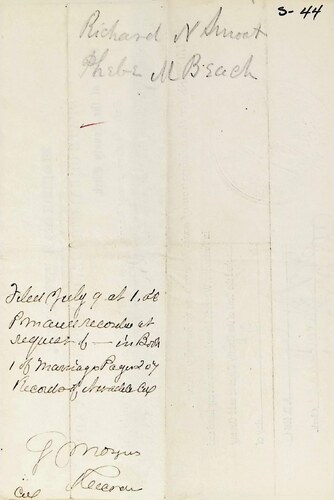 S-44
Richard N Smoot
Phebe M Beach
Filed July 9 at 1.20
P.M and recorded at
request of — in Book
1 of Marriage Page 207
Records of Nevada Co
Recorder